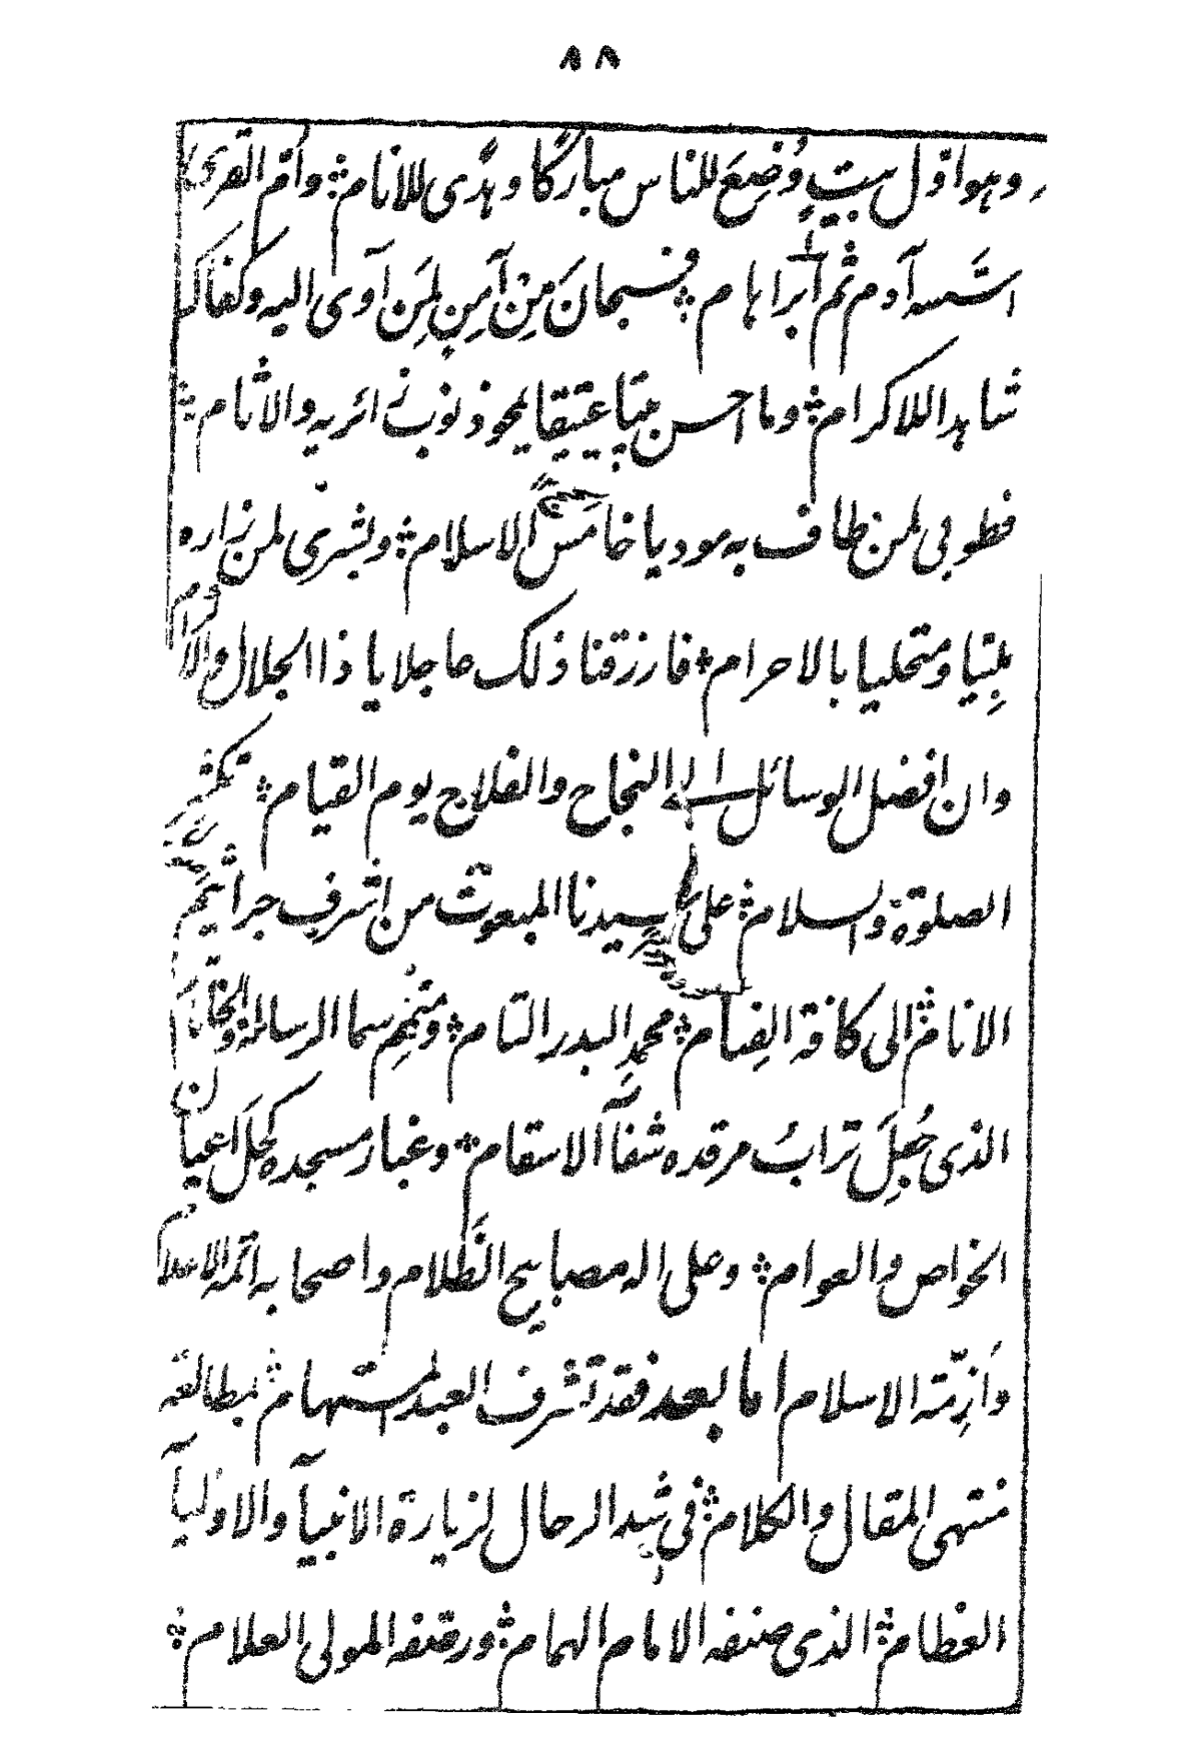 ٨٨
وهو اوّل بيتٍ وُضِعَ للناس مباركا وهدًى للانام ؞ وامّ القرى
اسّسه آدم ثم ابراهام ؞ فسبحانَ مِن آمِنٍ لِمَن آوى اليه وكفاك
شاهدا للاكرام ؞ وما احسن بيتا عتيقا يمحو ذنوب زائريه والاثام ؞
فطوبى لمن طاف به موديا خامس الاسلام ؞ وبشرى لمن زاره
ملبّيا ومتحليا بالاحرام ؞ فارزقنا ذلك عاجلا يا ذا الجلال والاكرام
وان افضل الوسائل الى النجاح والفلاح يوم القيام ؞ تكثير
الصلوة والسلام ؞ على سيدنا المبعوث من اشرف جراثيم
الانام ؞ الى كافة الفئام ؞ محمدٍ البدر التام ؞ ومتمّم سما الرسالة والختام
الذى جُعِلَ ترابُ مرقده شفآء الاسقام ؞ وغبار مسجده كحلَ اعيان
الخواص والعوام ؞ وعلى اله مصابيح الظَّلام واصحابه ائمة الاعلام
وَازِمّة الاسلام اما بعد فقد تشرف العبد المستهام ؞ بمطالعة
منتهى المقال والكلام ؞ فى شد الرحال لزيارة الانبيآء والاوليآء
العظام ؞ الذى صنفه الامام الهمام ؞ ورصّفه المولى العلام ؞